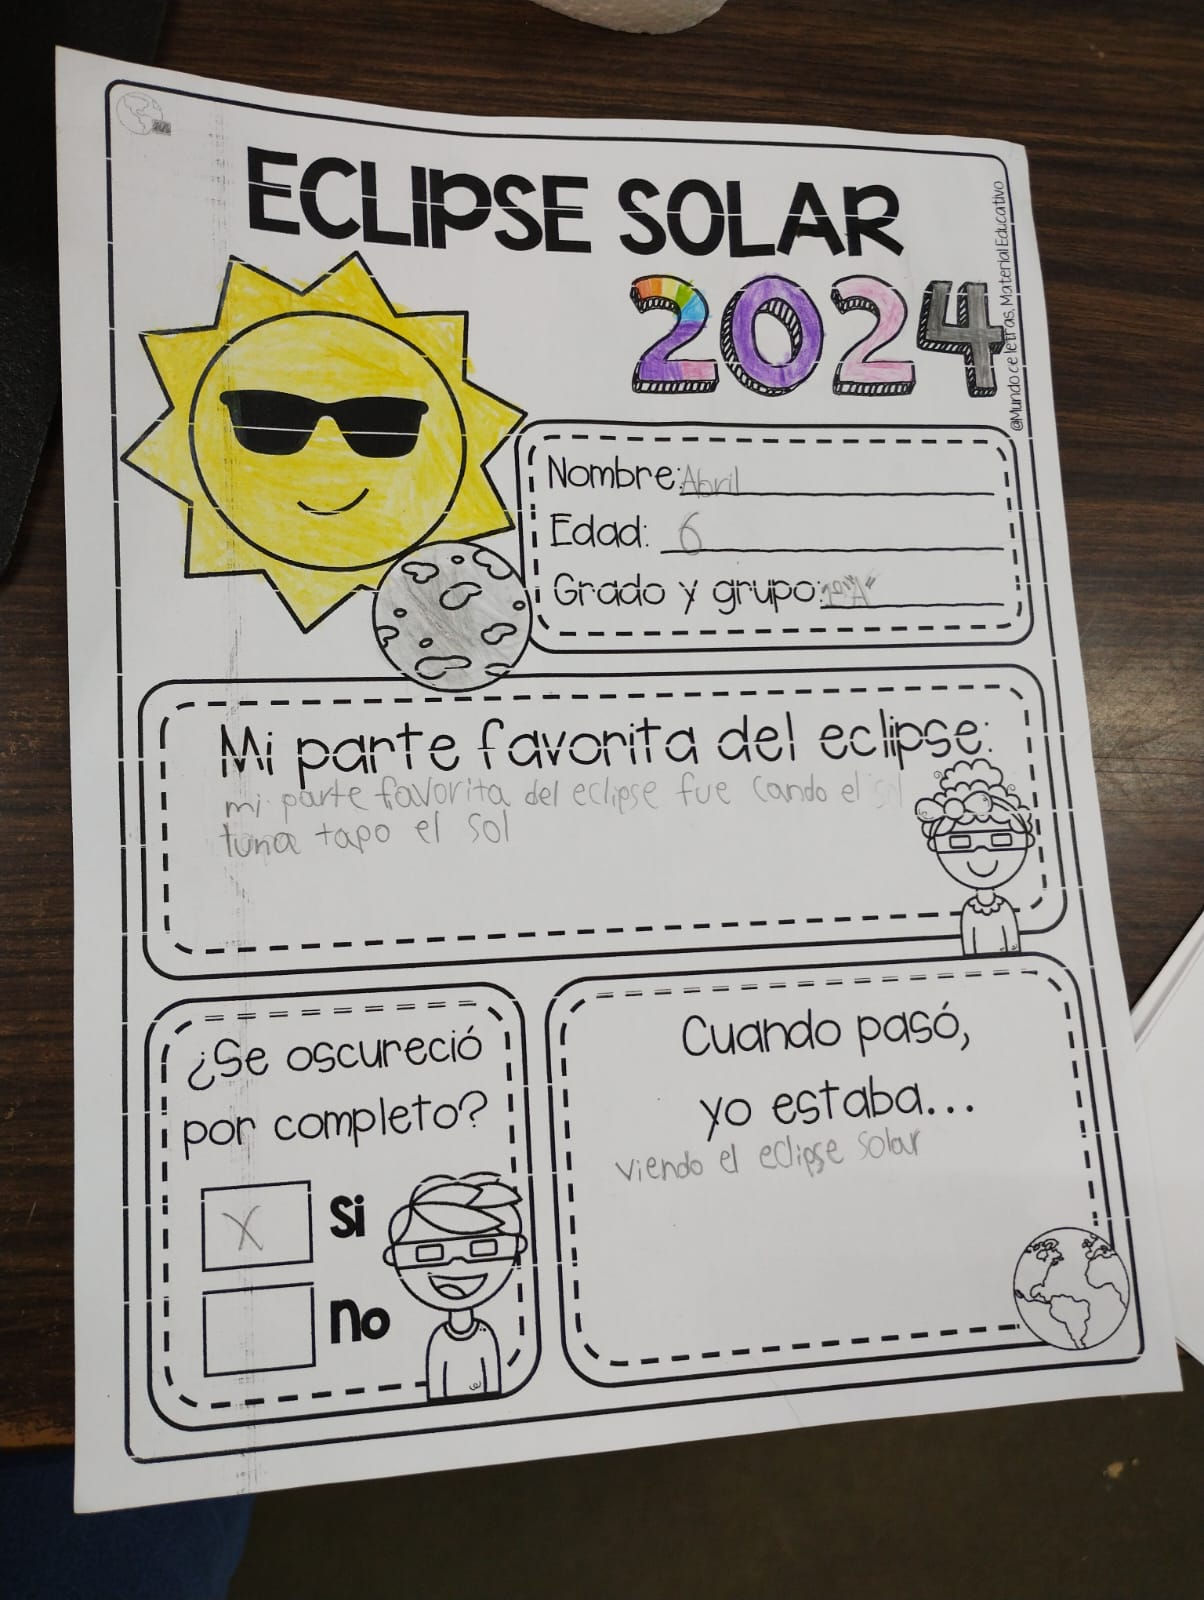 ECLIPSE SOLAR
2024
@Mundo de letras, Material Educativo
Nombre: Abril
Edad: 6
Grado y grupo: 1º"A"
Mi parte favorita del eclipse:
mi parte favorita del eclipse fue cando el sol
luna tapo el sol
¿Se oscureció
por completo?
X Si
No
Cuando pasó,
yo estaba...
viendo el eclipse solar